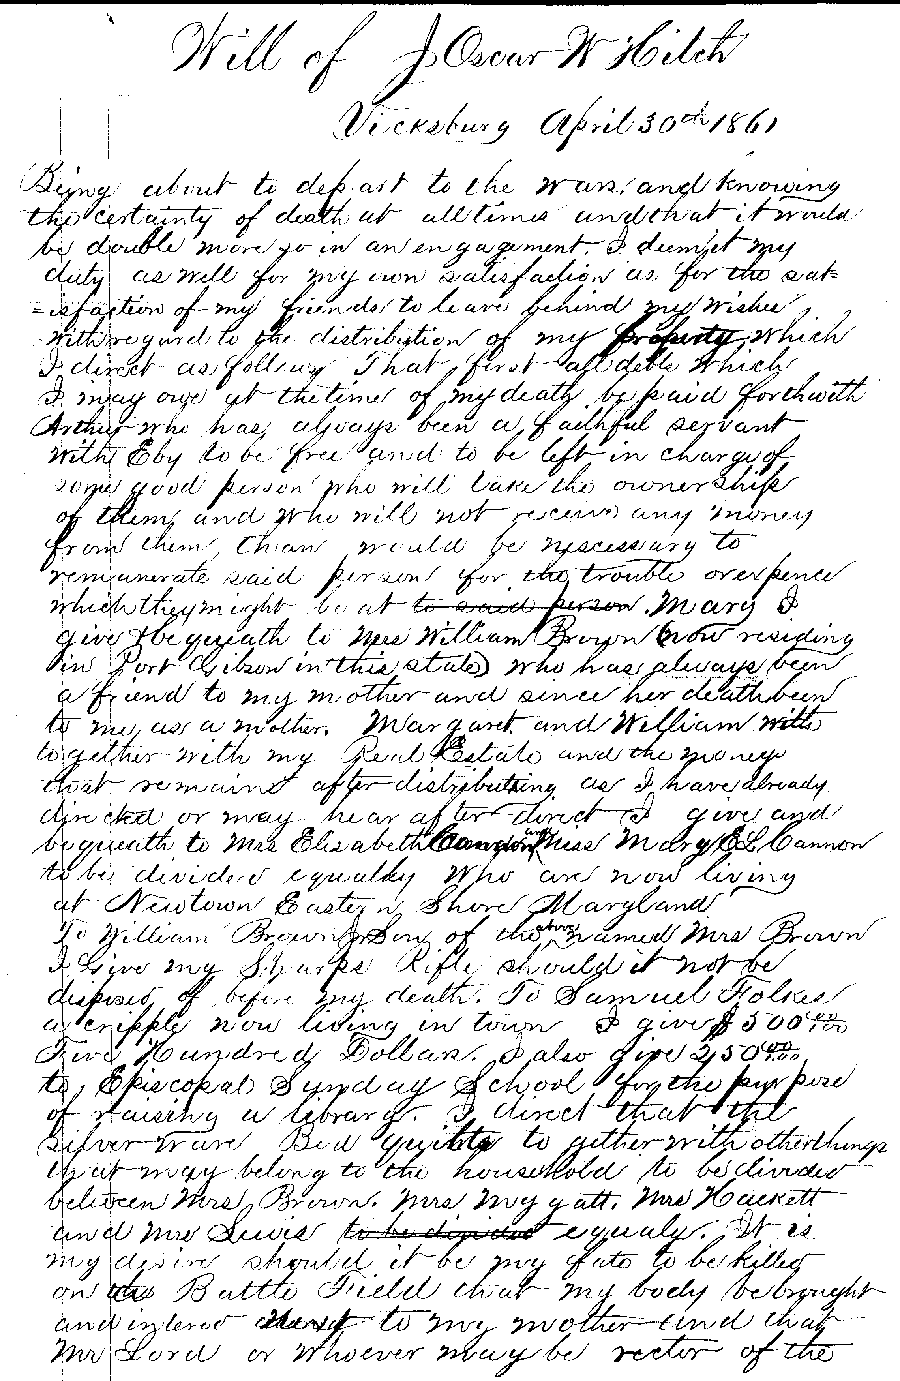 Will of J Oscar W Hitch
Vicksburg April 30th 1861
Being about to depart to the wars, and knowing
the certainty of death at all times and that it would
be double more so in an engagement. I deem it my
duty as well for my own satisfaction as for the sat=
=isfaction of my friends to leave behind my wishes
with regard to the distribution of my property which
I direct as follows That first all debts which
I may owe at the time of my death be paid forthwith
Arthur who has always been a faithful servant
with Eby to be free and to be left in charge of
some good person who will take the ownership
of them, and who will not receive any money
from them, than would be nescessary to
remunerate said person for the trouble or expence
which they might be at to said person. Mary I
give & bequeath to Mrs William Brown (now residing
in Port Gibson in this state) who has always been
a friend to my mother and since her death been
to me as a mother. Margaret and William with
together with my Real Estate and the money
that remains after distributing as I have already
directed or may hear after direct I give and
bequeath to Mrs Elisabeth Cannon and Miss Mary E L Cannon
to be divided equally who are now living
at Newtown Eastern Shore Maryland
To William Brown Jr Son of the above named Mrs Brown
I Give my Sharps Rifle should it not be
disposed of before my death. To Samuel Folkes
a cripple now living in town I give $500 00/100
Five Hundred Dollars. I also give 250 00/100
to Episcopal Sunday School for the purpose
of raising a library. I direct that the
silver ware Bed quilts to gether with other things
that may belong to the household to be divided
between Mrs Brown. Mrs Mygatt. Mrs Hackett
and Mrs Lewis to be divided equaly. It is
my desire should it be my fate to be killed
on the Battle Field that my body be brought
and intered next to my mother and that
Mr Lord or whoever may be rector of the